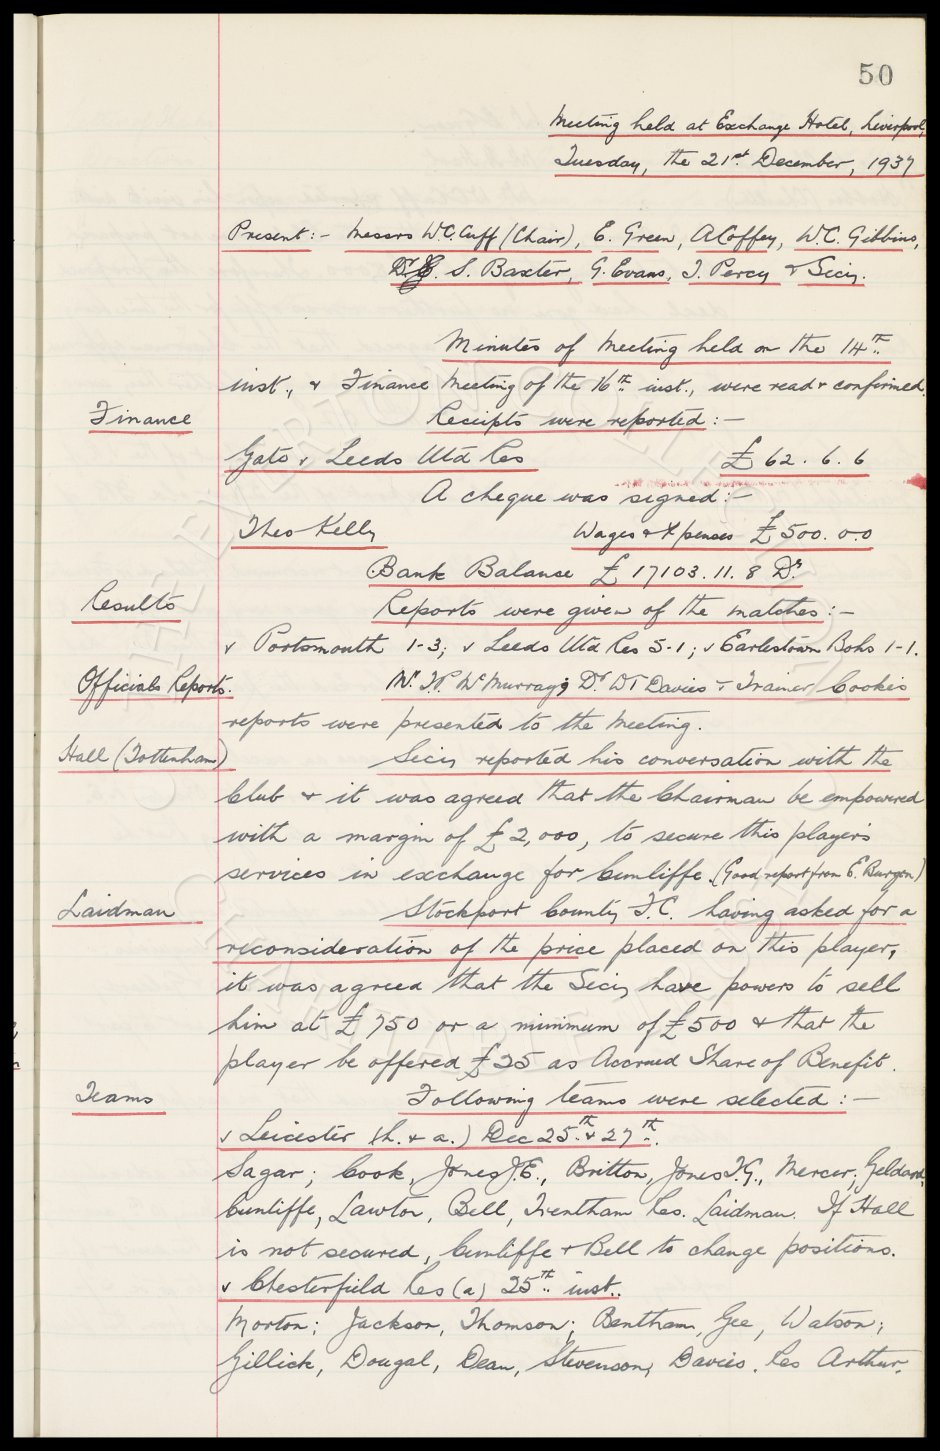 50
Meeting held at Exchange Hotel, Liverpool,
Tuesday, the 21st December, 1937
Present:- Messrs W.C. Cuff (Chair), E. Green, A Coffey, W.C. Gibbins,
Dr S. Baxter, G. Evans, T. Percy & Secy.
Minutes of Meeting held on the 14th
inst., & Finance Meeting of the 16th inst., were read & confirmed.
Finance
Receipts were reported:-
Gate v Leeds Utd Res £ 62. 6. 6
A cheque was signed:-
Theo Kelly Wages & Xpenses £500. 0. 0
Bank Balance £ 17103. 11. 8 Dr
Results
Reports were given of the matches:-
v Portsmouth 1-3; v Leeds Utd Res 5-1; v Earlestown Bohs 1-1.
Officials Reports.
Mr. McMurray's Dr. Davies & Trainer Cooke's
reports were presented to the Meeting.
Hall (Tottenham)
Secy reported his conversation with the
Club & it was agreed that the Chairman be empowered
with a margin of £2,000, to secure this player's
services in exchange for Cunliffe. (Good report from E. Burgon)
Laidman
Stockport County F.C. having asked for a
reconsideration of the price placed on this player,
it was agreed that the Secy have powers to sell
him at £750 or a minimum of £500 & that the
player be offered £25 as Accrued Share of Benefit.
Teams
Following teams were selected:-
v Leicester (h. & a.) Dec 25th & 27th.
Sagar; Cook, Jones J.E., Britton, Jones T.G., Mercer; Geldard,
Cunliffe, Lawton, Bell, Trentham Res. Laidman. If Hall
is not secured, Cunliffe & Bell to change positions.
v Chesterfield Res (a) 25th inst.
Morton; Jackson, Thomson; Bentham, Gee, Watson;
Gillick, Dougal, Dean, Stevenson, Davies. Res Arthur.